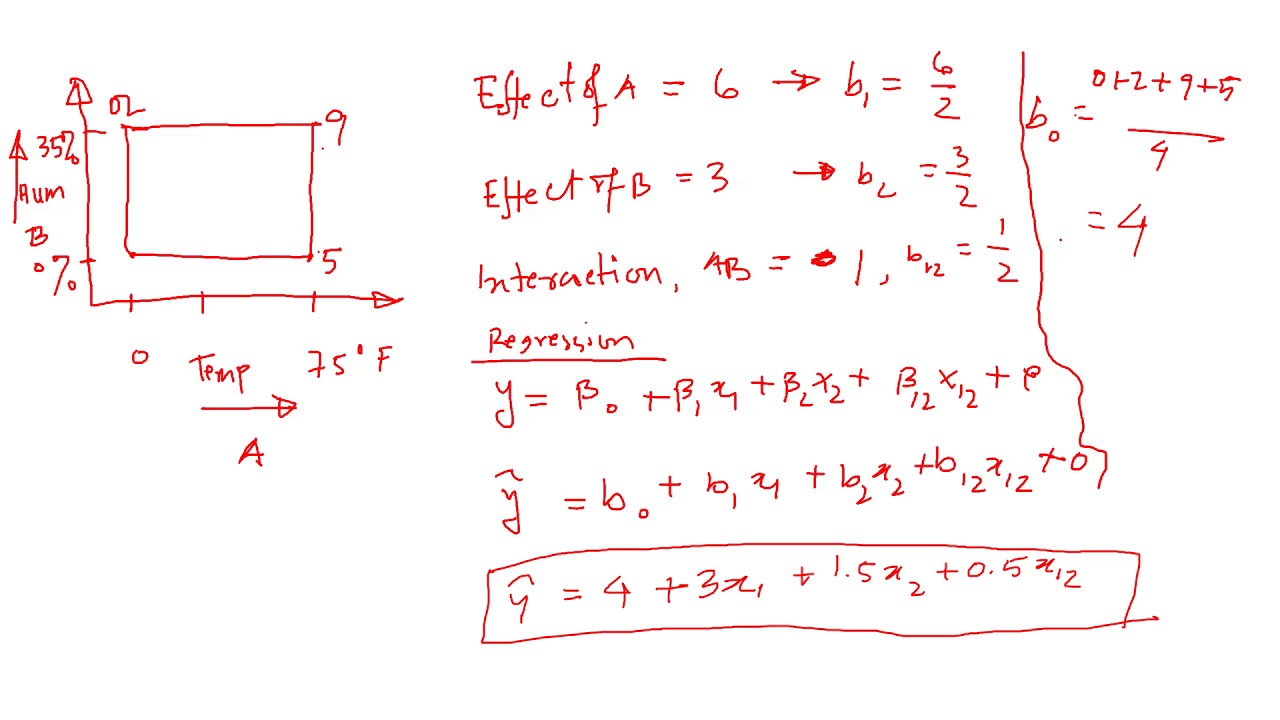 02
9
35%
Hum
B
0%
5
0
Temp
75°F
A
Effect of A = 6 → b₁ = 6/2
Effect of B = 3 → b₂ = 3/2
Interaction, AB = 1, b₁₂ = 1/2
Regression
y = β₀ + β₁x₁ + β₂x₂ + β₁₂x₁₂ + e
ŷ = b₀ + b₁x₁ + b₂x₂ + b₁₂x₁₂ + 0
ŷ = 4 + 3x₁ + 1.5x₂ + 0.5x₁₂
b₀ = 0+2+9+5/4
= 4